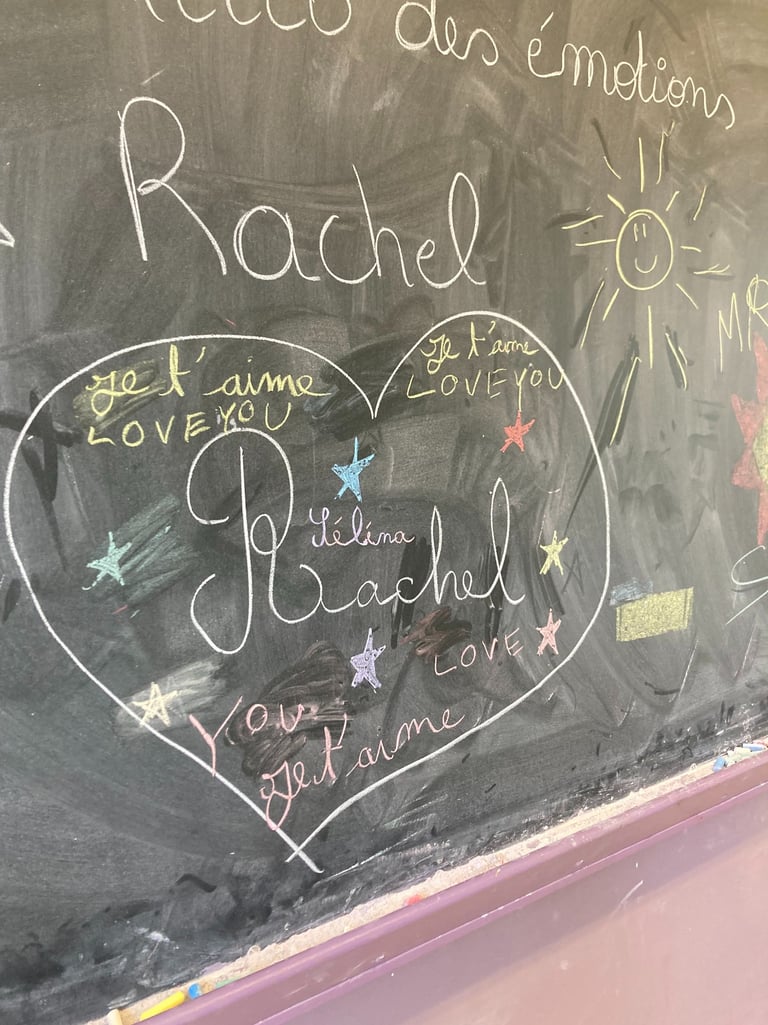 des émotions
Rachel
MR
je t'aime
LOVE YOU
je t'aime
LOVE YOU
Séléna
Rachel
LOVE
YOU
je t'aime